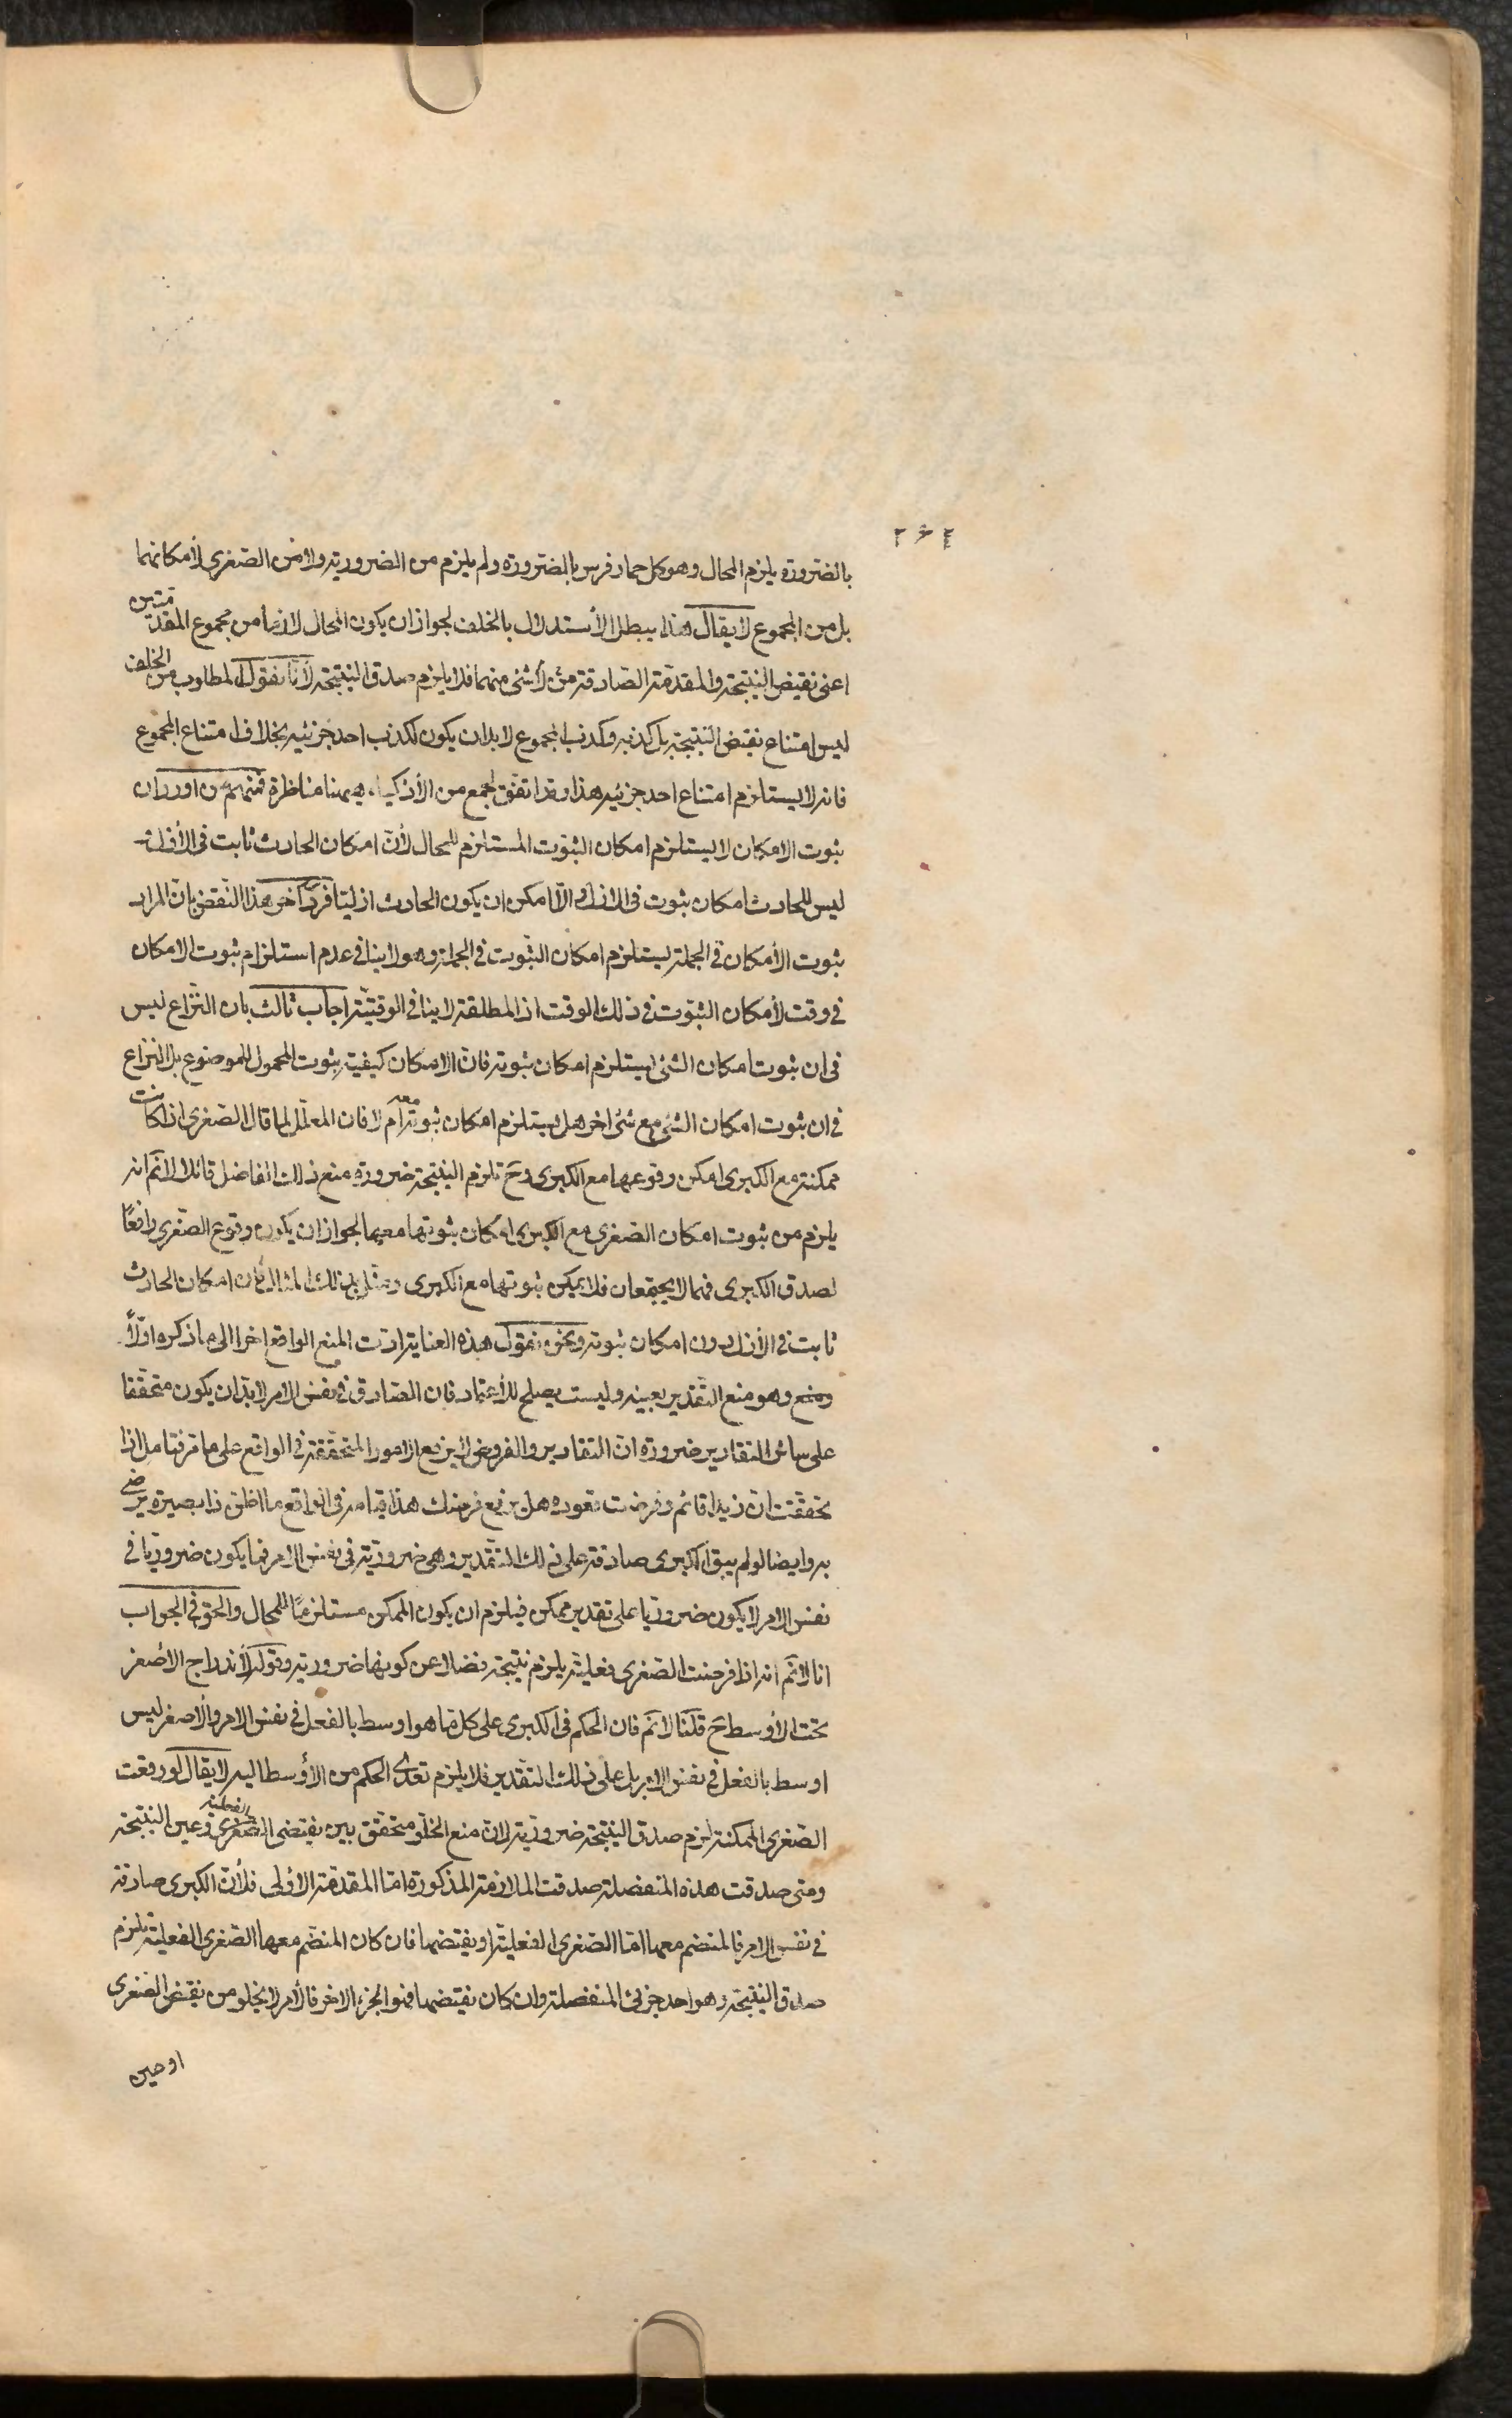 بالضرورة يلزم المحال وهو كل حمار فرس بالضرورة ولم يلزم من الضرورية ولا من الصغرى لأمكانها
بل من المجموع لا يقال هذا يبطل الأستدلال بالخلف لجواز ان يكون المحال لازما من مجموع المقدمتين
اعنى نقيض النتيجة والمقدمة الصادقة من لا شئ منهما فلا يلزم صدق النتيجة لأنا نقول المطلوب من الخلف
ليس امتناع نقيض النتيجة بل كذبه وكذب المجموع لا بد ان يكون لكذب احد جزئيه بخلاف امتناع المجموع
فانه لا يستلزم امتناع احد جزئيه هذا وقد اتفق لجمع من الأذكياء ههنا مناظرة فمنهم من اورد ان
ثبوت الامكان لا يستلزم امكان الثبوت المستلزم للمحال لأن امكان الحادث ثابت فى الأزل و
ليس للحادث امكان ثبوت فى الازل والا امكن ان يكون الحادث ازليا فرد آخر هذا النقض بان المراد
ثبوت الأمكان فى الجملة يستلزم امكان الثبوت فى الجملة وهو لا ينافى عدم استلزام ثبوت الامكان
فى وقت لأمكان الثبوت فى ذلك الوقت اذ المطلقة لا ينافى الوقتية اجاب ثالث بان النزاع ليس
فى ان ثبوت امكان الشئ يستلزم امكان ثبوته فان الامكان كيفية ثبوت المحمول للموضوع بل النزاع
فى ان ثبوت امكان الشئ مع شئ اخر هل يستلزم امكان ثبوته معه ام لا فان المعلل لما قال الصغرى اذا كانت
ممكنة مع الكبرى امكن وقوعها مع الكبرى وح تلزم النتيجة ضرورة منع ذلك الفاضل قائلا لا نم انه
يلزم من ثبوت امكان الصغرى مع الكبرى امكان ثبوتها معها لجواز ان يكون وقوع الصغرى رافعًا
لصدق الكبرى فهما لا يجتمعان فلا يمكن ثبوتها مع الكبرى ومثل بذلك المثال فان امكان الحادث
ثابت فى الأزل دون امكان ثبوته ونحن نقول هذه العناية ادت المنع الواقع اخرا الى ما ذكره اولاً
ومنع وهو منع التقدير بعينه وليست يصلح للأعتماد فان الصادق فى نفس الامر لا بد ان يكون متحققا
على سائر التقادير ضرورة ان التقادير والفروض لا يرفع الامور المتحققة فى الواقع على ما قرفتامل اذا
تحققت ان زيدا قائم وفرضت قعوده هل يرفع فرضك هذا قيامه فى الواقع ما اظن ذا بصيرة يرضى
به وايضا لو لم يبق الكبرى صادقة على ذلك التقدير وهى ضرورية فى نفس الامر فما يكون ضروريا فى
نفس الامر لا يكون ضروريا على تقدير ممكن فيلزم ان يكون الممكن مستلزمًا للمحال والحق فى الجواب
انا لا نم انه اذا فرضت الصغرى فعلية يلزم نتيجة فضلا عن كونها ضرورية وقوله لأندراج الأصغر
تحت الأوسط ح قلنا لا نم فان الحكم فى الكبرى على كل ما هو اوسط بالفعل فى نفس الامر والاصغر ليس
اوسط بالفعل فى نفس الامر بل على ذلك التقدير فلا يلزم تعدى الحكم من الأوسط اليه لا يقال لو وقعت
الصغرى الممكنة لزم صدق النتيجة ضرورية لان منع الخلو متحقق بين نقيض الصغرى الفعلية وعين النتيجة
ومتى صدقت هذه المنفصلة صدقت الملازمة المذكورة اما المقدمة الأولى فلأن الكبرى صادقة
فى نفس الامر فالمنضم معها اما الصغرى الفعلية او نقيضها فان كان المنضم معها الصغرى الفعلية يلزم
صدق النتيجة وهو احد جزئى المنفصلة وان كان نقيضها فهو الجزء الاخر فالأمر لا يخلو من نقيض الصغرى
او عين